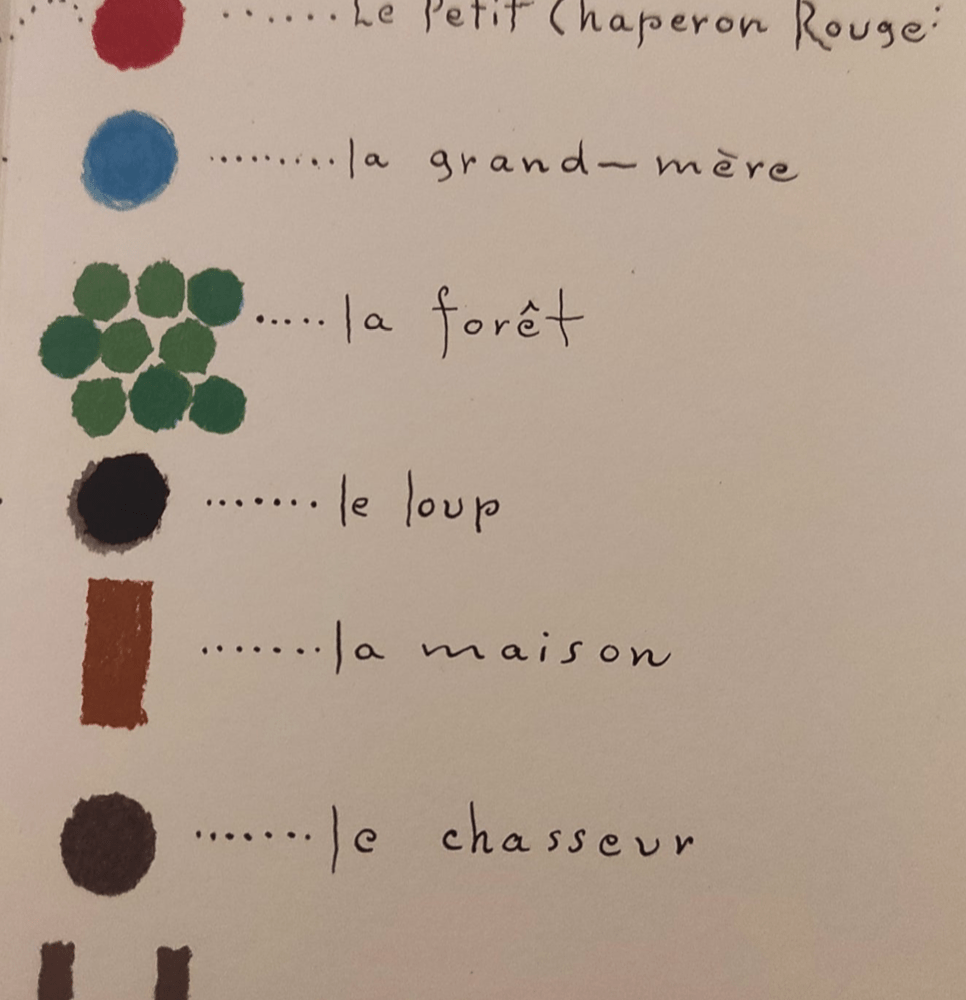 Le Petit Chaperon Rouge
la grand-mère
la forêt
le loup
la maison
le chasseur